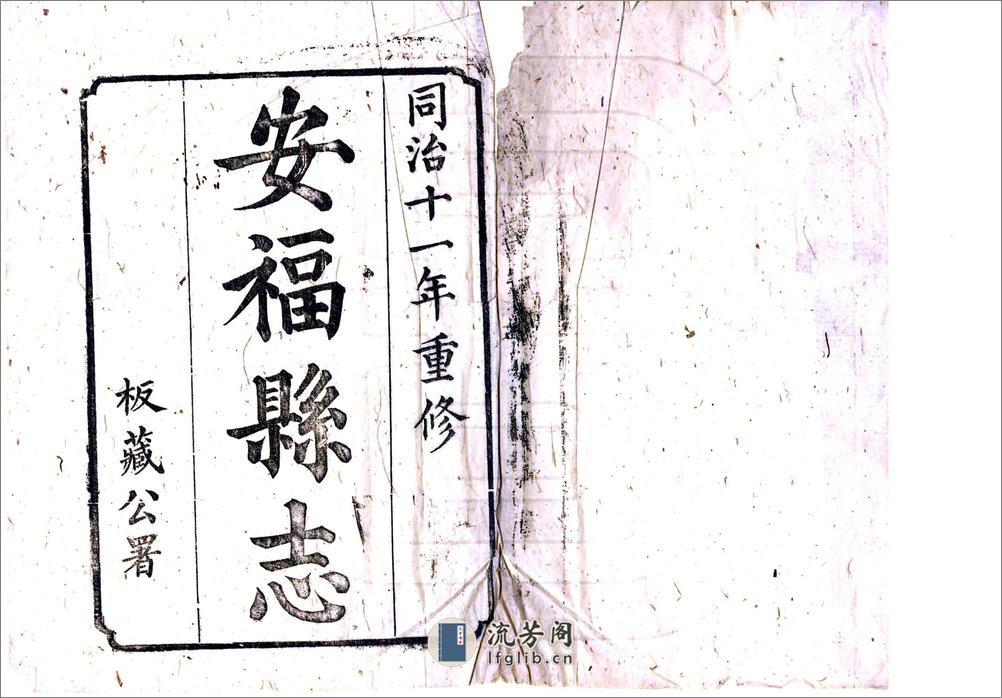 同治十一年重修
安福縣志
板藏公署
流芳阁
lfglib.cn